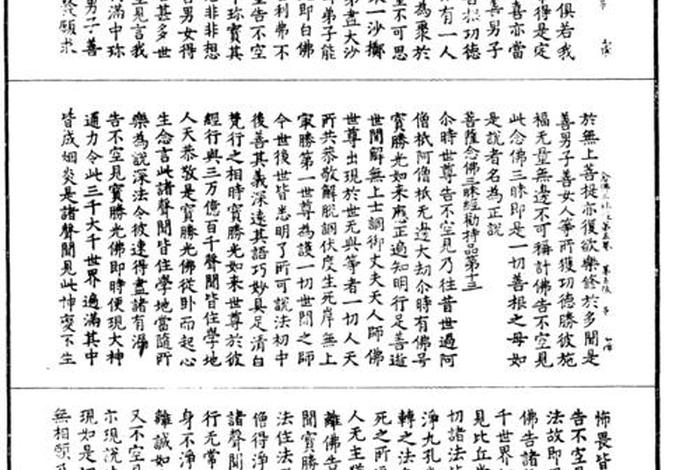 俱若我
得是定
喜亦當
善男子
根功德
有一人
為聚於
沙擲
量不可思
盡大沙
弟子能
即白佛
利弗不
告不空
珎寶其
非非想
男女得
甚多世
見言我
滿中珎
男子善
於願求
於無上菩提亦復欲樂修於多聞是
善男子善女人等所獲功德勝彼施
福无量無邊不可稱計佛告不空見
此念佛三昧即是一切善根之母如
是說者名為正說
菩薩念佛三昧經勸持品第十三
尒時世尊告不空見乃往昔世過阿
僧祇阿僧祇无邊大劫尒時有佛号
寶勝光如来應正遍知明行足善逝
世間解無上士調御丈夫天人師佛
世尊出現於世无與等者一切人天
所共恭敬解脱調伏度生死岸無上
㝡勝第一世尊為護一切世間之師
今世後世皆悉明了所可說法初中
後善其義深遠其語巧妙具足清白
梵行之相時寶勝光如来世尊於彼
經行與三万億百千聲聞皆住學地
人天恭敬是寶勝光佛從卧而起心
生念言此諸聲聞皆住學地當隨所
樂為說深法令彼速得盡諸有漏
告不空見寶勝光佛即時便現大神
通力令此三千大千世界遍滿其中
皆成烟炎是諸聲聞見此神變不生
怖畏皆
告不空
法故即
佛告諸
千世界
見比丘
切諸法
淨九孔
轉之法
死之所
人无主
離佛告
聞寶勝
法住法
僧得淨
諸聲聞
行无常
身不淨
離誠如
又不空見
亦現說
現如是
無相願